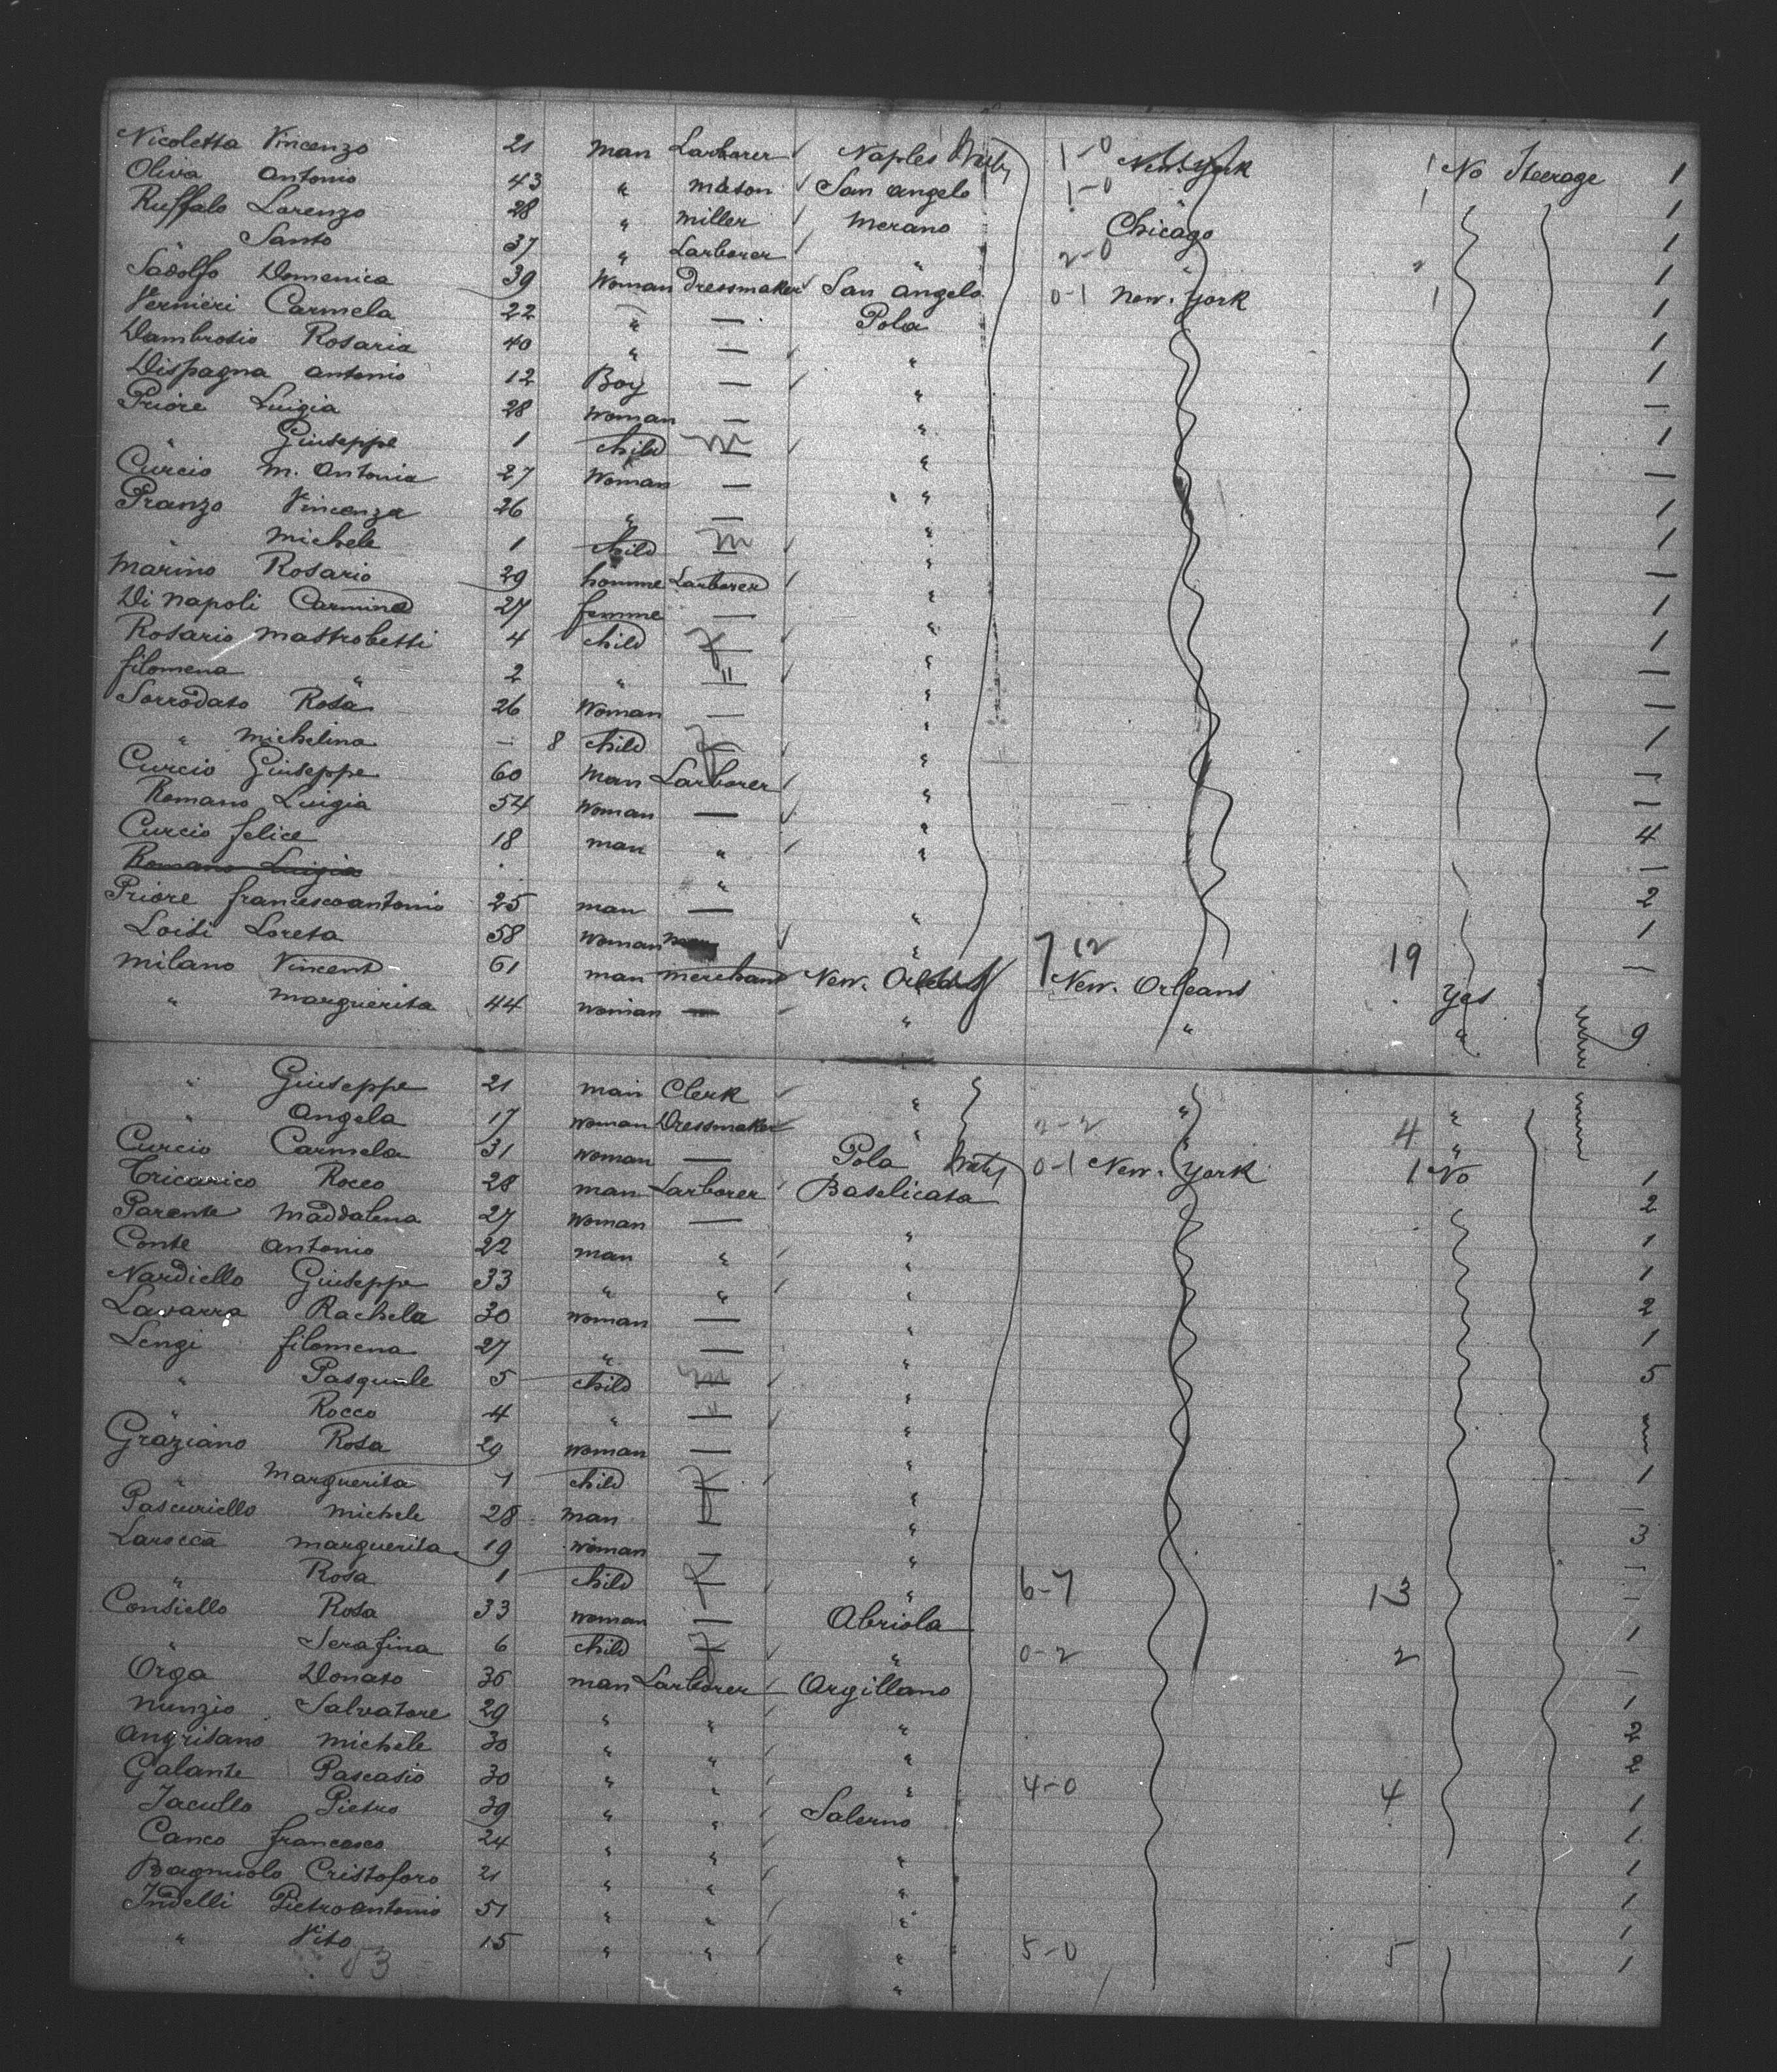 Nicoletta Vincenzo 21 man Larborer Naples Italy 1-0 New. York 1 No Steerage 1
Oliva Antonio 43 " mason San angelo 1-0 " 1 1
Ruffalo Lorenzo 28 " miller Merano Chicago 1
" Santo 37 " Larborer " 2-0 " 2 1
Sadolfo Domenica 39 Woman Dressmaker San angelo 0-1 New. York 1 1
Vernieri Carmela 22 " — Pola 1
Dambrosio Rosaria 40 " — " 1
Dispagna antonio 12 Boy — " —
Priore Luigia 28 Woman — " 1
" Giuseppe 1 child m " —
Curcio M. Antonia 27 Woman — " 1
Pranzo Vincenza 26 " — " 1
" Michele 1 child m " —
Marino Rosario 29 homme Larborer " 1
Di Napoli Carmina 27 femme — " 1
Rosario Mastroberti 4 child f " —
filomena " 2 " " " —
Sorrodato Rosa 26 Woman — " 1
" Michelina — 8 child f " —
Curcio Giuseppe 60 Man Larborer " —
Romano Luigia 54 Woman — " 4
Curcio felice 18 man " " —
Romano Luigia " 2
Priore francescoantonio 25 man — " 1
Loisi Loreta 58 Woman " 7 12 19 —
Milano Vincent 61 man merchant New. Orleans New. Orleans Yes
" Marguerita 44 woman — " " " 9
" Giuseppe 21 man Clerk " " "
" Angela 17 woman Dressmaker " 2-2 " 4 "
Curcio Carmela 31 woman — Pola Italy 0-1 New. York 1 No 1
Tricarico Rocco 28 man Larborer Baselicata 2
Parente Maddalena 27 Woman — " 1
Conte Antonio 22 man " " 1
Nardiello Giuseppe 33 " " " 2
Lavarra Rachela 30 woman — " 1
Lengi filomena 27 " — " 5
" Pasquale 5 child m "
" Rocco 4 " " "
Graziano Rosa 29 woman — " 1
" Marguerita 1 child f " —
Pascuriello Michele 28 man — " 3
Larocca Marguerita 19 woman — " —
" Rosa 1 child f " 6-7 13 —
Consiello Rosa 33 woman — Abriola 1
" Serafina 6 child f " 0-2 2 —
Orga Donato 36 man Larborer Argillano 1
Nunzio Salvatore 29 " " " 2
Angrisano Michele 30 " " " 2
Galante Pascasio 30 " " " 4-0 4 1
Iacullo Pietro 39 " " Salerno 1
Canco francesco 24 " " " 1
Bagnuolo Cristoforo 21 " " " 1
Indelli Pietroantonio 51 " " " 1
" Vito 15 " " " 5-0 5 1
53 "